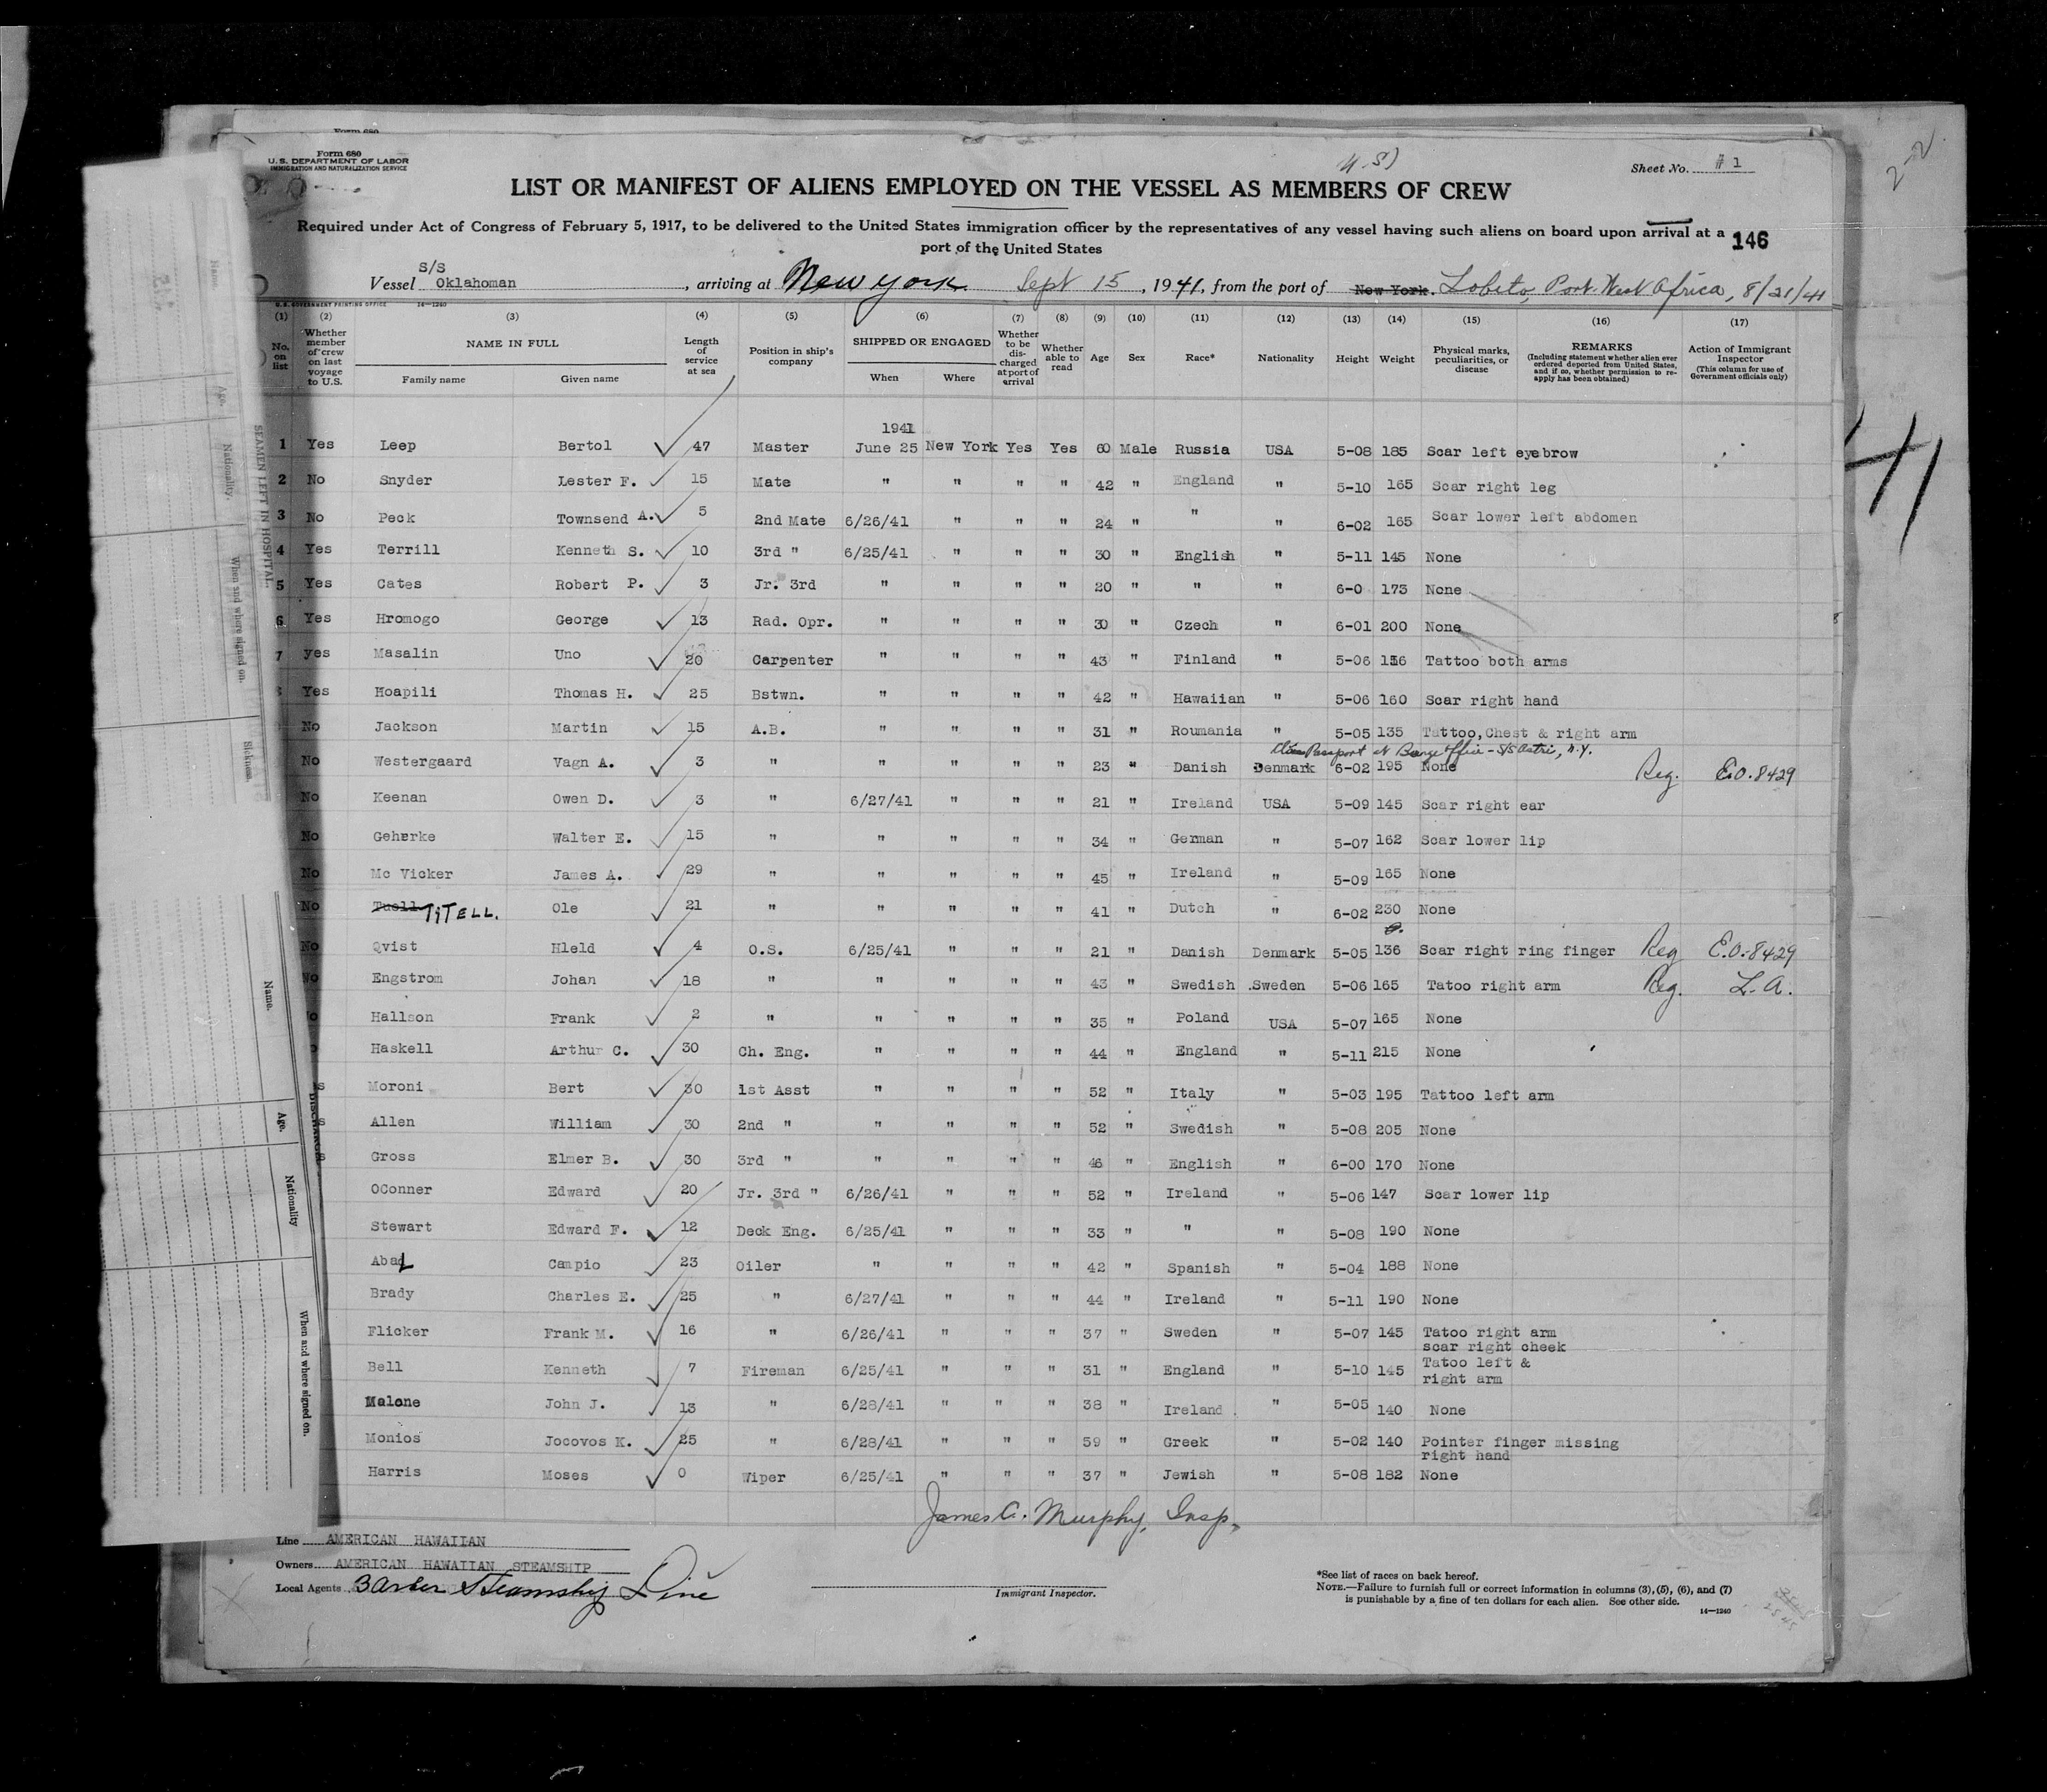 Form 680
Form 680
U. S. DEPARTMENT OF LABOR
IMMIGRATION AND NATURALIZATION SERVICE
Sheet No. #1
LIST OR MANIFEST OF ALIENS EMPLOYED ON THE VESSEL AS MEMBERS OF CREW
Required under Act of Congress of February 5, 1917, to be delivered to the United States immigration officer by the representatives of any vessel having such aliens on board upon arrival at a
port of the United States
146
S/S
Vessel Oklahoman, arriving at New York Sept 15, 1941, from the port of New York. Lobito, Port. West Africa, 8/21/41
U. S. GOVERNMENT PRINTING OFFICE 14—1240
(1) (2) (3) (4) (5) (6) (7) (8) (9) (10) (11) (12) (13) (14) (15) (16) (17)
No. on list Whether member of crew on last voyage to U.S. NAME IN FULL Family name Given name Length of service at sea Position in ship's company SHIPPED OR ENGAGED When Where Whether to be discharged at port of arrival Whether able to read Age Sex Race* Nationality Height Weight Physical marks, peculiarities, or disease REMARKS (Including statement whether alien ever ordered deported from United States, and if so, whether permission to reapply has been obtained) Action of Immigrant Inspector (This column for use of Government officials only)
1941
1 Yes Leep Bertol 47 Master June 25 New York Yes Yes 60 Male Russia USA 5-08 185 Scar left eyebrow
2 No Snyder Lester F. 15 Mate " " " " 42 " England " 5-10 165 Scar right leg
3 No Peck Townsend A. 5 2nd Mate 6/26/41 " " " 24 " " " 6-02 165 Scar lower left abdomen
4 Yes Terrill Kenneth S. 10 3rd " 6/25/41 " " " 30 " English " 5-11 145 None
5 Yes Cates Robert P. 3 Jr. 3rd " " " " 20 " " " 6-0 173 None
6 Yes Hromogo George 13 Rad. Opr. " " " " 30 " Czech " 6-01 200 None
7 yes Masalin Uno 20 Carpenter " " " " 43 " Finland " 5-06 156 Tattoo both arms
Yes Hoapili Thomas H. 25 Bstwn. " " " " 42 " Hawaiian " 5-06 160 Scar right hand
No Jackson Martin 15 A.B. " " " " 31 " Roumania " 5-05 135 Tattoo, Chest & right arm
Passport at Barge Office - S/S Astri, N.Y.
No Westergaard Vagn A. 3 " " " " " 23 " Danish Denmark 6-02 195 None Reg. E.O. 8429
No Keenan Owen D. 3 " 6/27/41 " " " 21 " Ireland USA 5-09 145 Scar right ear
No Geherke Walter E. 15 " " " " " 34 " German " 5-07 162 Scar lower lip
No Mc Vicker James A. 29 " " " " " 45 " Ireland " 5-09 165 None
No TiTELL. Ole 21 " " " " " 41 " Dutch " 6-02 230 None
No Qvist Hleld 4 O.S. 6/25/41 " " " 21 " Danish Denmark 5-05 136 Scar right ring finger Reg E.O. 8429
No Engstrom Johan 18 " " " " " 43 " Swedish Sweden 5-06 165 Tatoo right arm Reg. L.A.
Hallson Frank 2 " " " " " 35 " Poland USA 5-07 165 None
Haskell Arthur C. 30 Ch. Eng. " " " " 44 " England " 5-11 215 None
s Moroni Bert 30 1st Asst " " " " 52 " Italy " 5-03 195 Tattoo left arm
s Allen William 30 2nd " " " " " 52 " Swedish " 5-08 205 None
s Gross Elmer B. 30 3rd " " " " " 46 " English " 6-00 170 None
OConner Edward 20 Jr. 3rd " 6/26/41 " " " 52 " Ireland " 5-06 147 Scar lower lip
Stewart Edward F. 12 Deck Eng. 6/25/41 " " " 33 " " " 5-08 190 None
Abad Campio 23 Oiler " " " " 42 " Spanish " 5-04 188 None
Brady Charles E. 25 " 6/27/41 " " " 44 " Ireland " 5-11 190 None
Flicker Frank M. 16 " 6/26/41 " " " 37 " Sweden " 5-07 145 Tatoo right arm
scar right cheek
Bell Kenneth 7 Fireman 6/25/41 " " " 31 " England " 5-10 145 Tatoo left &
right arm
Malone John J. 13 " 6/28/41 " " " 38 " Ireland " 5-05 140 None
Monios Jocovos K. 25 " 6/28/41 " " " 59 " Greek " 5-02 140 Pointer finger missing
right hand
Harris Moses 0 Wiper 6/25/41 " " " 37 " Jewish " 5-08 182 None
James A. Murphy, Insp.
Line AMERICAN HAWAIIAN
Owners AMERICAN HAWAIIAN STEAMSHIP
Local Agents Barber Steamship Line
Immigrant Inspector.
*See list of races on back hereof.
NOTE.—Failure to furnish full or correct information in columns (3), (5), (6), and (7)
is punishable by a fine of ten dollars for each alien. See other side.
14—1240
SEAMEN LEFT IN HOSPITAL.
Name. Age. Nationality. When and where signed on. Sickness.
Name. Age. Nationality When and where signed on.